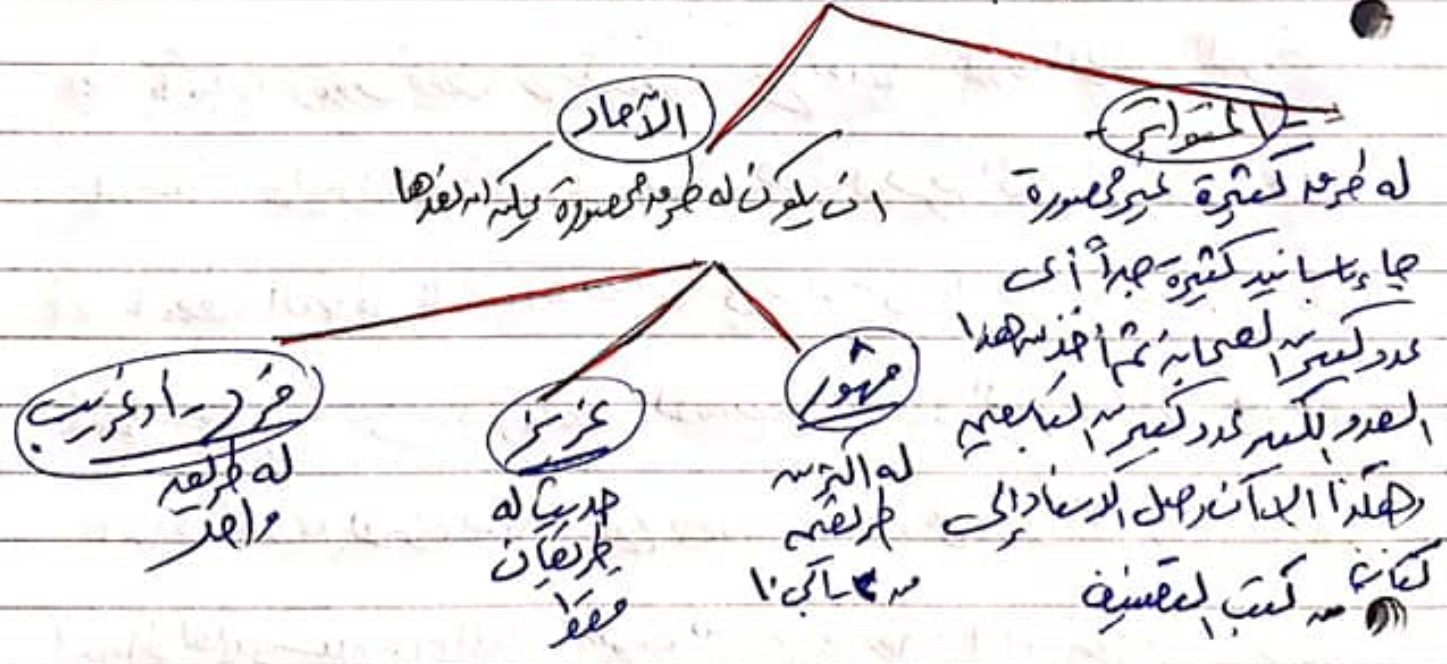 المتواتر
له طرق كثيرة غير محصورة
جاء بأسانيد كثيرة جداً أى
عدد كبير من الصحابة ثم أخذ من هذا
العدد الكبير عدد كبير من التابعين
وهكذا إلى أن وصل الإسناد إلى
كتاب من كتب التصنيف
الآحاد
ان يكون له طرق محصورة يمكن ان نعدها
مشهور
له اكثر من
طريقين
من إلى ١٠
عزيز
حديث له
طريقان
فقط
فرد او غريب
له طريق
واحد